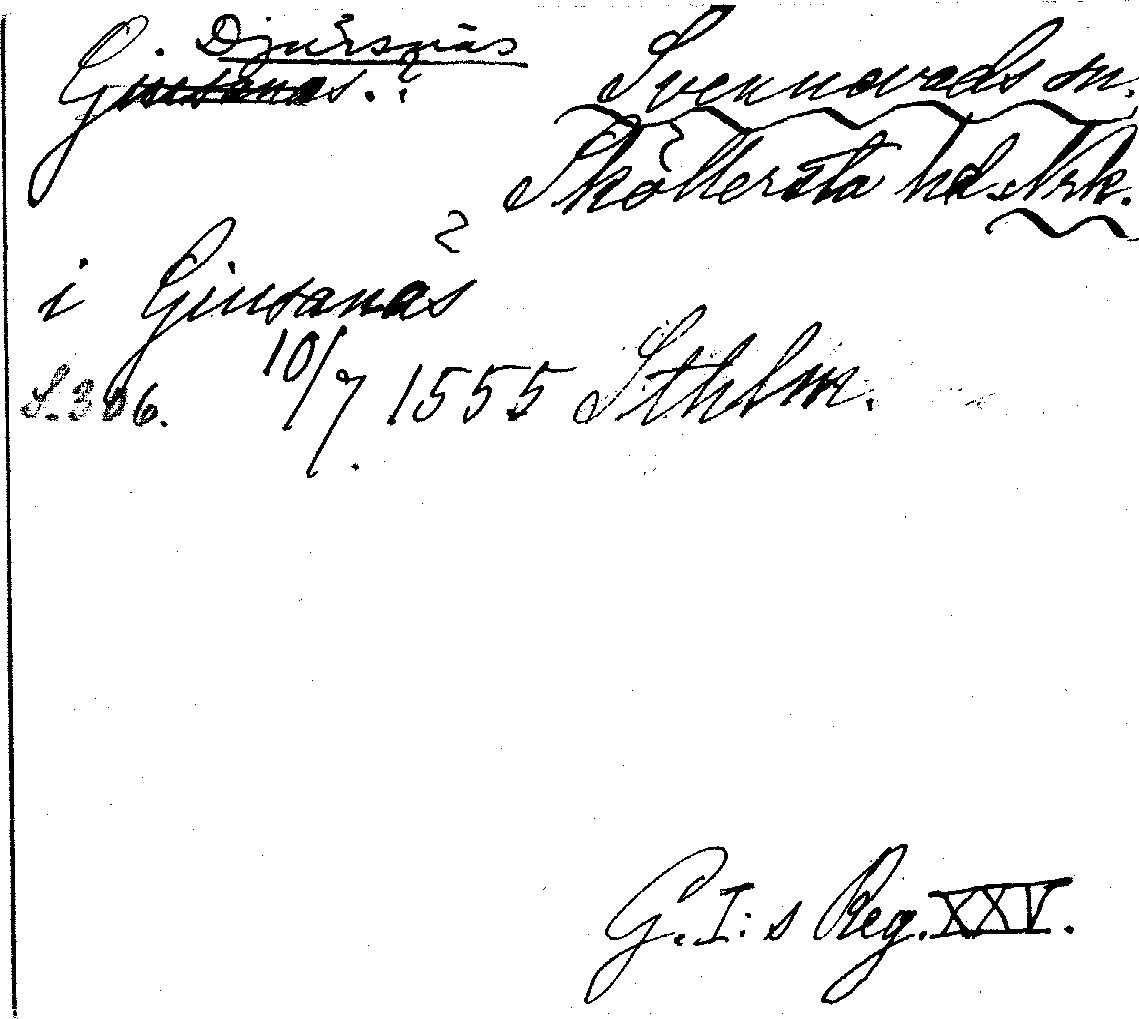 Djursnäs
Giusanas.? Svennevads sn.
Sköllersta hd. Nrk.
i Giusanäs
S. 306. 10/7 1555 Sthlm.
G. I:s Reg. XXV.